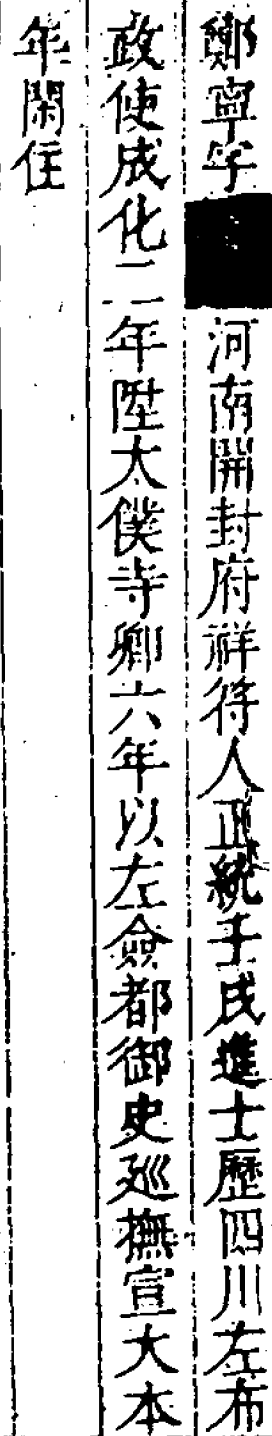 鄭寧字■河南開封府祥符人正統壬戌進士歷四川左布
政使成化二年陞太僕寺卿六年以左僉都御史廵撫宣大本
年閑住